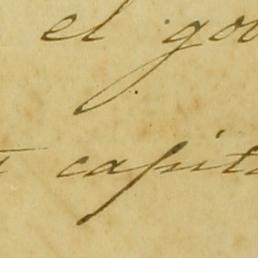 el gob
t capita